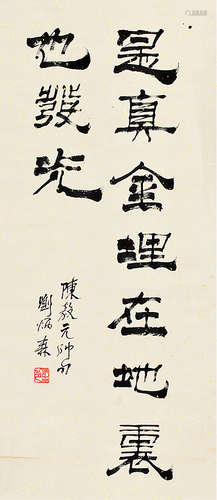 是真金埋在地裏
也發光
陳毅元帥句
劉炳森